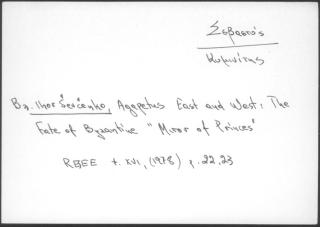 Σεβαστός
Κυμινήτης
Βλ. Ihor Ševčenko, Agapetus East and West: The
Fate of Byzantine "Mirror of Princes"
RESEE t. XVI, (1978) p. 22, 23